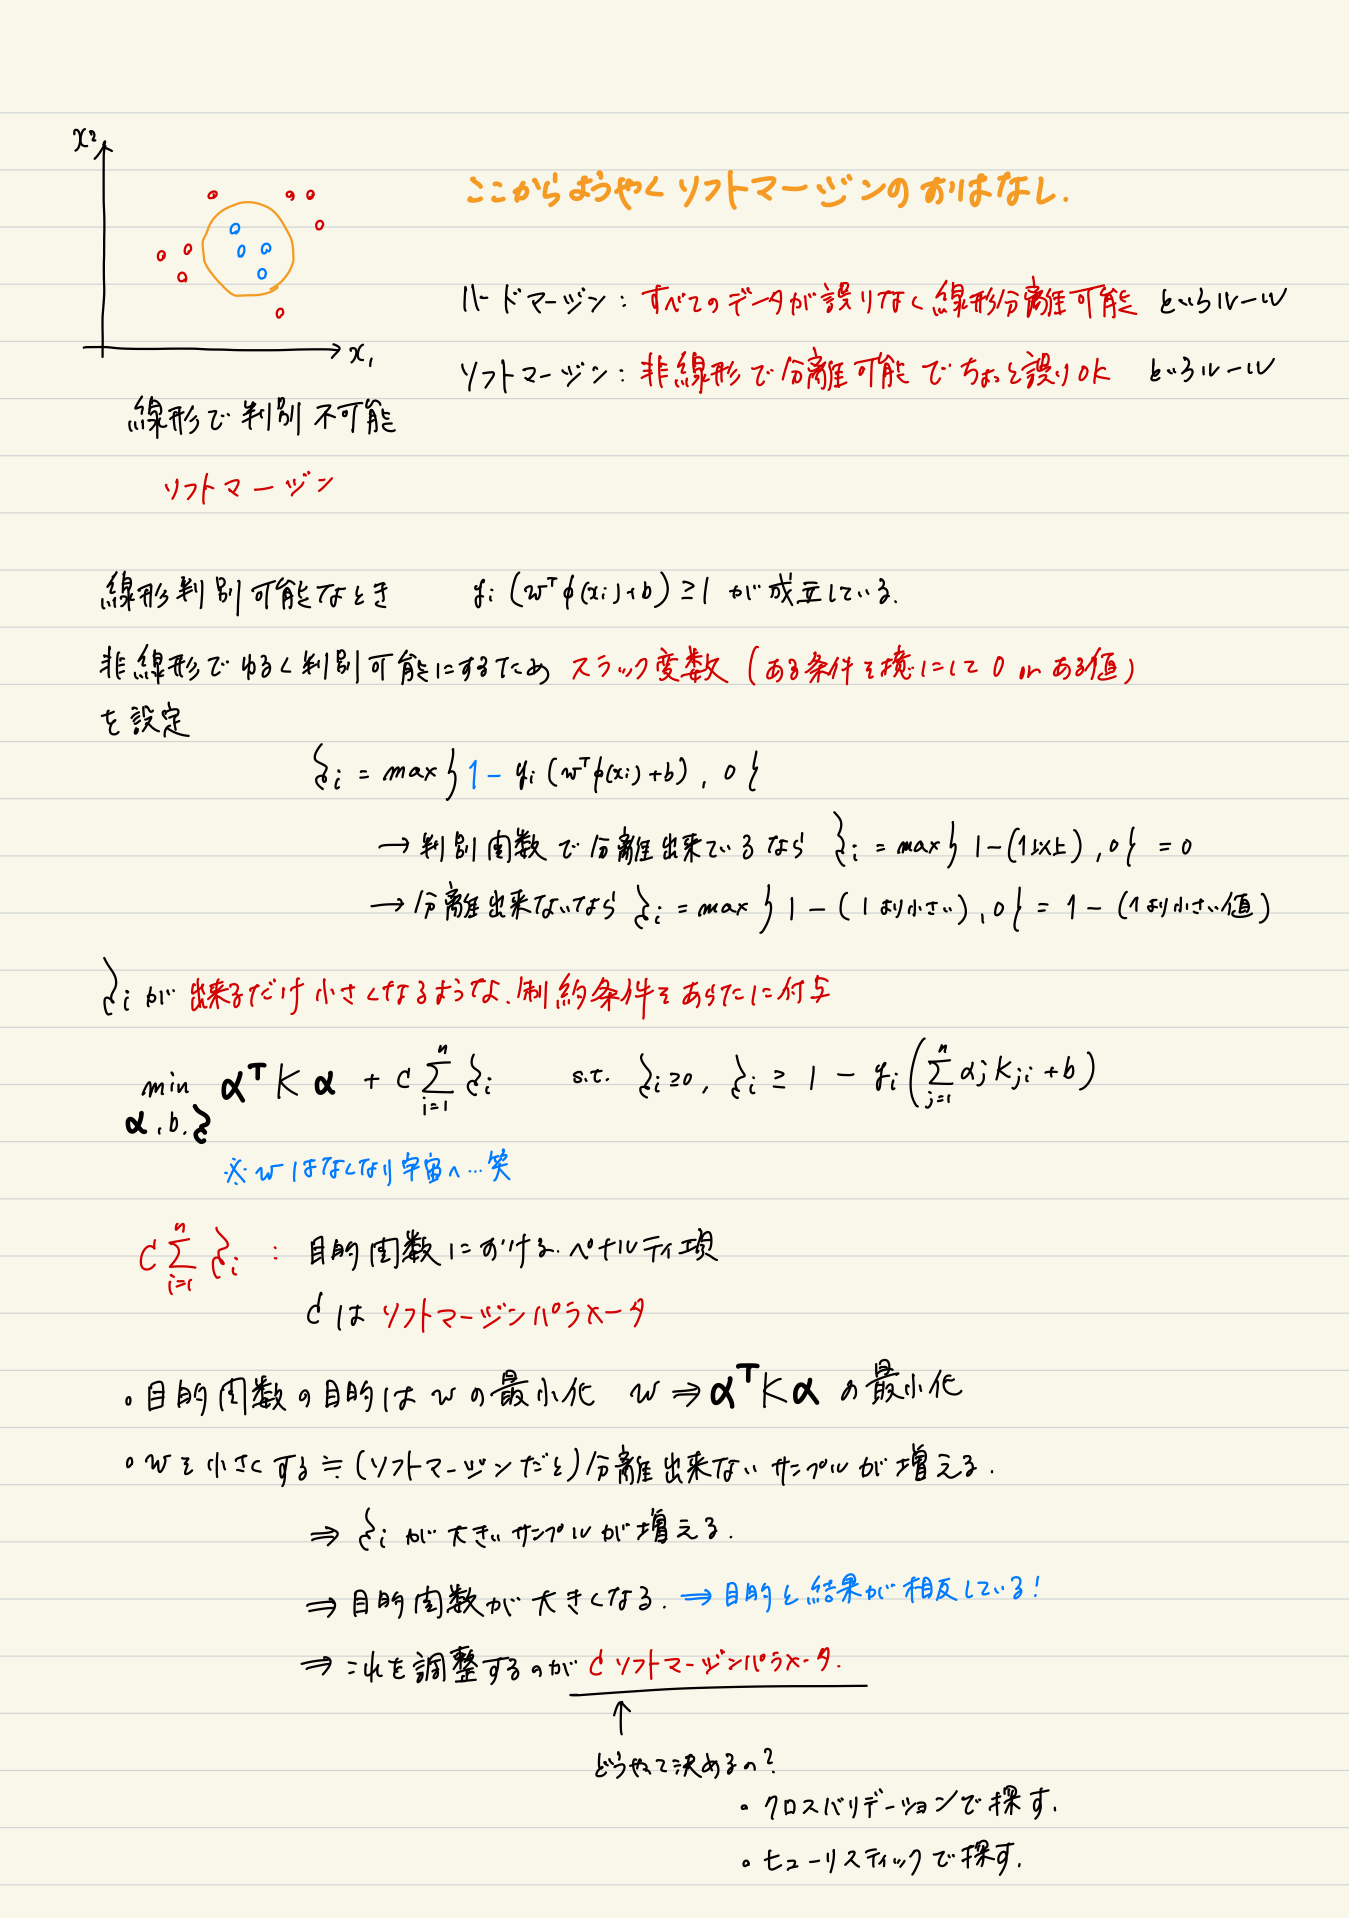 x₂
x₁
ここからようやく ソフトマージンの おはなし.
ハードマージン : すべてのデータが誤りなく 線形分離可能 というルール
ソフトマージン : 非線形で分離可能でちょっと誤りOK というルール
線形で判別不可能
ソフトマージン
線形判別可能なとき yᵢ (wᵀφ(xᵢ)+b) ≥ 1 が成立している.
非線形でゆるく判別可能にするため スラック変数 (ある条件を境にして 0 or ある値)
を設定
ξᵢ = max{ 1 - yᵢ (wᵀφ(xᵢ)+b) , 0 }
→ 判別関数で分離出来ているなら ξᵢ = max{ 1-(1以上) , 0 } = 0
→ 分離出来ないなら ξᵢ = max{ 1 - (1より小さい) , 0 } = 1 - (1より小さい値)
ξᵢ が 出来るだけ小さくなるような、制約条件をあらたに付与
min αᵀKα + C Σⁿᵢ₌₁ ξᵢ s.t. ξᵢ ≥ 0, ξᵢ ≥ 1 - yᵢ ( Σⁿⱼ₌₁ αⱼ Kⱼᵢ + b )
α , b, ξ
※ w はなくなり宇宙へ… 笑
C Σⁿᵢ₌₁ ξᵢ : 目的関数における ペナルティ項
C は ソフトマージンパラメータ
。目的関数の目的は w の最小化 w ⇒ αᵀKα の最小化
。w を小さくする ≒ (ソフトマージンだと) 分離出来ないサンプルが増える.
⇒ ξᵢ が大きいサンプルが増える.
⇒ 目的関数が大きくなる. ⇒ 目的と結果が相反している!
⇒ これを調整するのが C ソフトマージンパラメータ.
↑
どうやって決めるの?
。クロスバリデーションで探す.
。ヒューリスティックで探す.